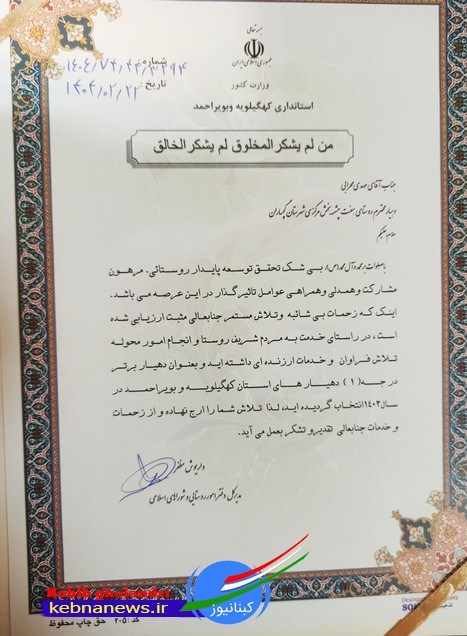 بسمه تعالی
جمهوری اسلامی ایران
وزارت کشور
استانداری کهگیلویه وبویراحمد
شماره: ۱۴۰۴/۷۴/۴۲/۳۲۹۴
تاریخ: ۱۴۰۴/۰۲/۲۲
من لم یشکر المخلوق لم یشکر الخالق
جناب آقای مهدی محرابی
دهیار محترم روستای هفت چشمه بخش مرکزی شهرستان گچساران
سلام علیکم
باصلوات بر محمد و آل محمد(ص)؛ بی شک تحقق توسعه پایدار روستائی، مرهون
مشارکت وهمدلی وهمراهی عوامل تاثیرگذار در این عرصه می باشد.
اینک که زحمات بی شائبه وتلاش مستمر جنابعالی مثبت ارزیابی شده
است، در راستای خدمت به مردم شریف روستا و انجام امور محوله
تلاش فراوان و خدمات ارزنده ای داشته اید و بعنوان دهیار برتر
درجه (۱) دهیار های استان کهگیلویه و بویراحمد در
سال۱۴۰۳انتخاب گردیده اید، لذا تلاش شما را ارج نهاده و از زحمات
و خدمات جنابعالی تقدیرو تشکر بعمل می آید.
داریوش مظفر
مدیرکل دفتر امور روستایی و شوراهای اسلامی
kebnanews.ir
کبنانیوز
کد: ۲۰۵ حق چاپ محفوظ